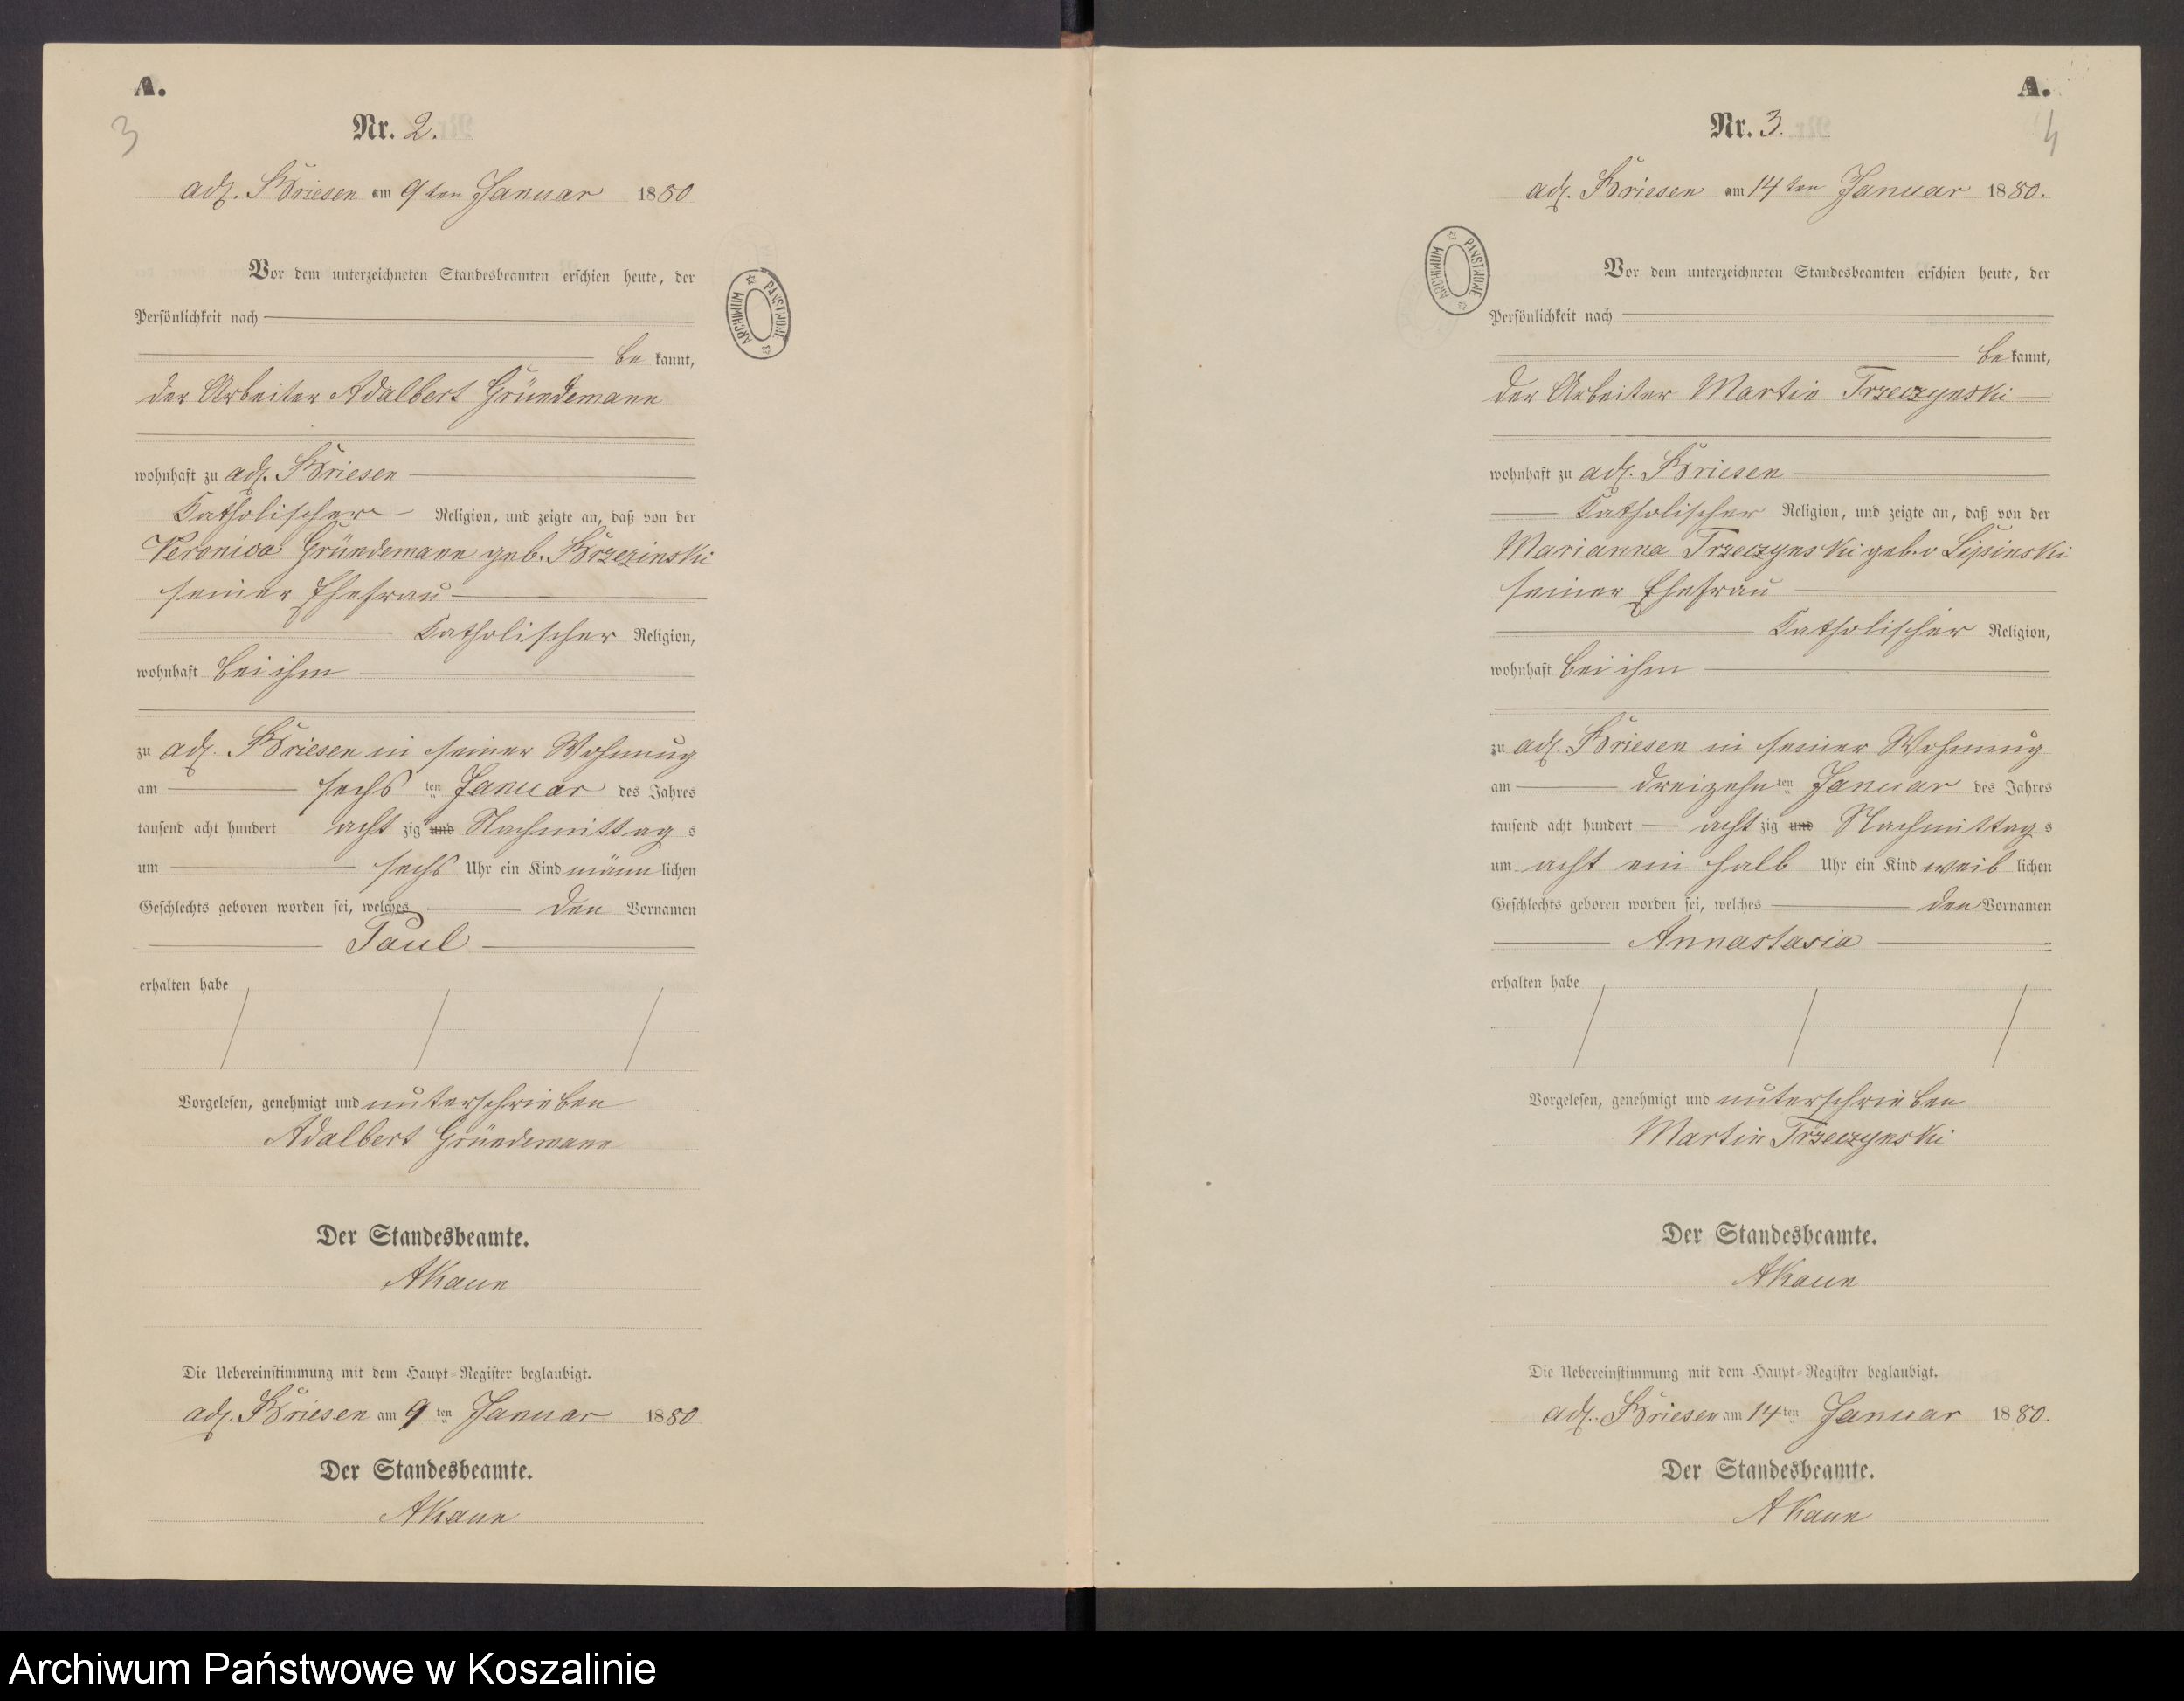 A.
3
Nr. 2.
adl. Briesen am 9ten Januar 1880
Vor dem unterzeichneten Standesbeamten erschien heute, der
Persönlichkeit nach
be kannt,
der Arbeiter Adalbert Gründemann
wohnhaft zu adl. Briesen
Katholischer Religion, und zeigte an, daß von der
Veronica Gründemann geb. Brzezinski
seiner Ehefrau
Katholischer Religion,
wohnhaft bei ihm
zu adl. Briesen in seiner Wohnung
am sechs ten Januar des Jahres
tausend acht hundert acht zig und Nachmittag s
um sechs Uhr ein Kind männ lichen
Geschlechts geboren worden sei, welches den Vornamen
Paul
erhalten habe
Vorgelesen, genehmigt und unterschrieben
Adalbert Gründemann
Der Standesbeamte.
AKaun
Die Uebereinstimmung mit dem Haupt-Register beglaubigt.
adl. Briesen am 9 ten Januar 1880
Der Standesbeamte.
AKaun
ARCHIWUM PAŃSTWOWE
A.
4
Nr. 3.
adl. Briesen am 14ten Januar 1880.
ARCHIWUM PAŃSTWOWE
Vor dem unterzeichneten Standesbeamten erschien heute, der
Persönlichkeit nach
be kannt,
der Arbeiter Martin Trzeczynski
wohnhaft zu adl. Briesen
Katholischer Religion, und zeigte an, daß von der
Marianna Trzeczynski geb. v Lipinski
seiner Ehefrau
Katholischer Religion,
wohnhaft bei ihm
zu adl. Briesen in seiner Wohnung
am dreizehn ten Januar des Jahres
tausend acht hundert acht zig und Nachmittag s
um acht ein halb Uhr ein Kind weib lichen
Geschlechts geboren worden sei, welches den Vornamen
Annastasia
erhalten habe
Vorgelesen, genehmigt und unterschrieben
Martin Trzeczynski
Der Standesbeamte.
AKaun
Die Uebereinstimmung mit dem Haupt-Register beglaubigt.
adl. Briesen am 14 ten Januar 1880.
Der Standesbeamte.
AKaun
Archiwum Państwowe w Koszalinie